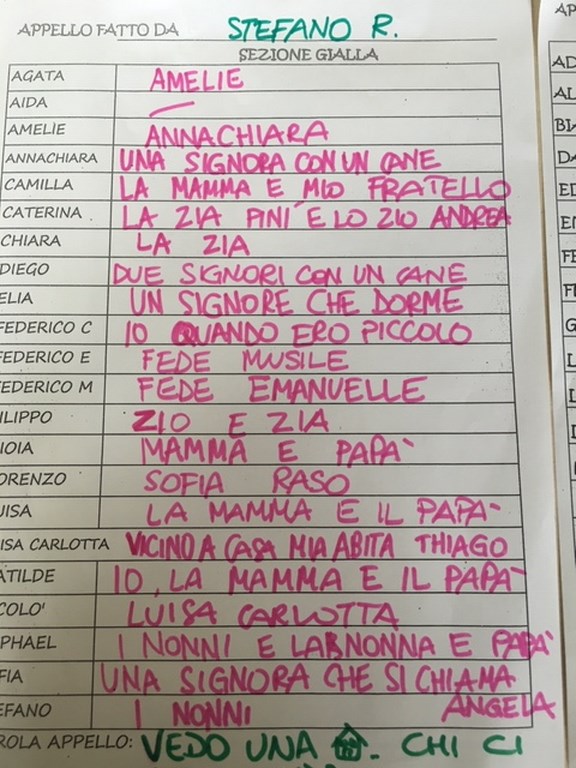 APPELLO FATTO DA STEFANO R.
SEZIONE GIALLA
AGATA AMELIE
AIDA —
AMELIE ANNACHIARA
ANNACHIARA UNA SIGNORA CON UN CANE
CAMILLA LA MAMMA E MIO FRATELLO
CATERINA LA ZIA PINI E LO ZIO ANDREA
CHIARA LA ZIA
DIEGO DUE SIGNORI CON UN CANE
ELIA UN SIGNORE CHE DORME
FEDERICO C IO QUANDO ERO PICCOLO
FEDERICO E FEDE MUSILE
FEDERICO M FEDE EMANUELLE
ILIPPO ZIO E ZIA
IOIA MAMMA E PAPA'
ORENZO SOFIA RASO
UISA LA MAMMA E IL PAPA'
ISA CARLOTTA VICINO A CASA MIA ABITA THIAGO
ATILDE IO, LA MAMMA E IL PAPA'
COLO' LUISA CARLOTTA
PHAEL I NONNI E LA NONNA E PAPA'
FIA UNA SIGNORA CHE SI CHIAMA ANGELA
EFANO I NONNI
ROLA APPELLO: VEDO UNA . CHI CI
AP
AD
AL
BI
DA
ED
FE